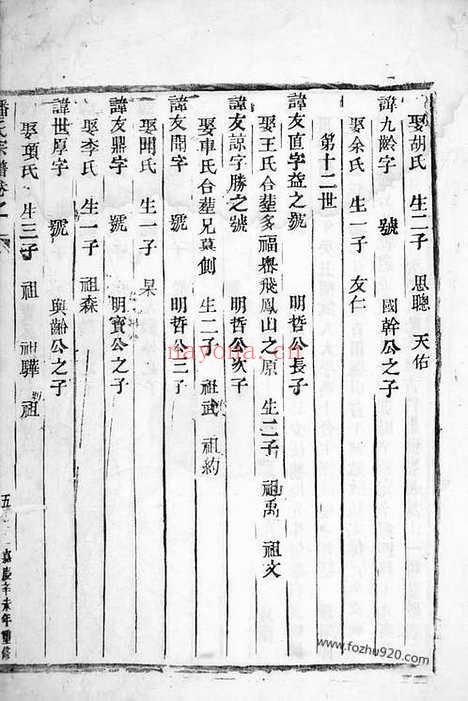 娶胡氏 生二子 思聰 天佑
諱九齡字 號 國幹公之子
娶余氏 生一子 友仁
第十二世
諱友直字益之號 明哲公長子
娶王氏合塟多福嶴飛鳳山之原 生二子 祖禹 祖文
諱友諒字勝之號 明哲公次子
娶車氏合塟兄真側 生二子 祖武 祖約
諱友聞字 號 明哲公三子
娶明氏 生一子 杲
諱友鼎字 號 明寶公之子
娶李氏 生一子 祖森
諱世厚字 號 與齡公之子
娶項氏 生三子 祖 祖驊 祖
潘氏宗譜卷之一 五 嘉慶辛未年重修
nayona.cn
www.fozhu920.com